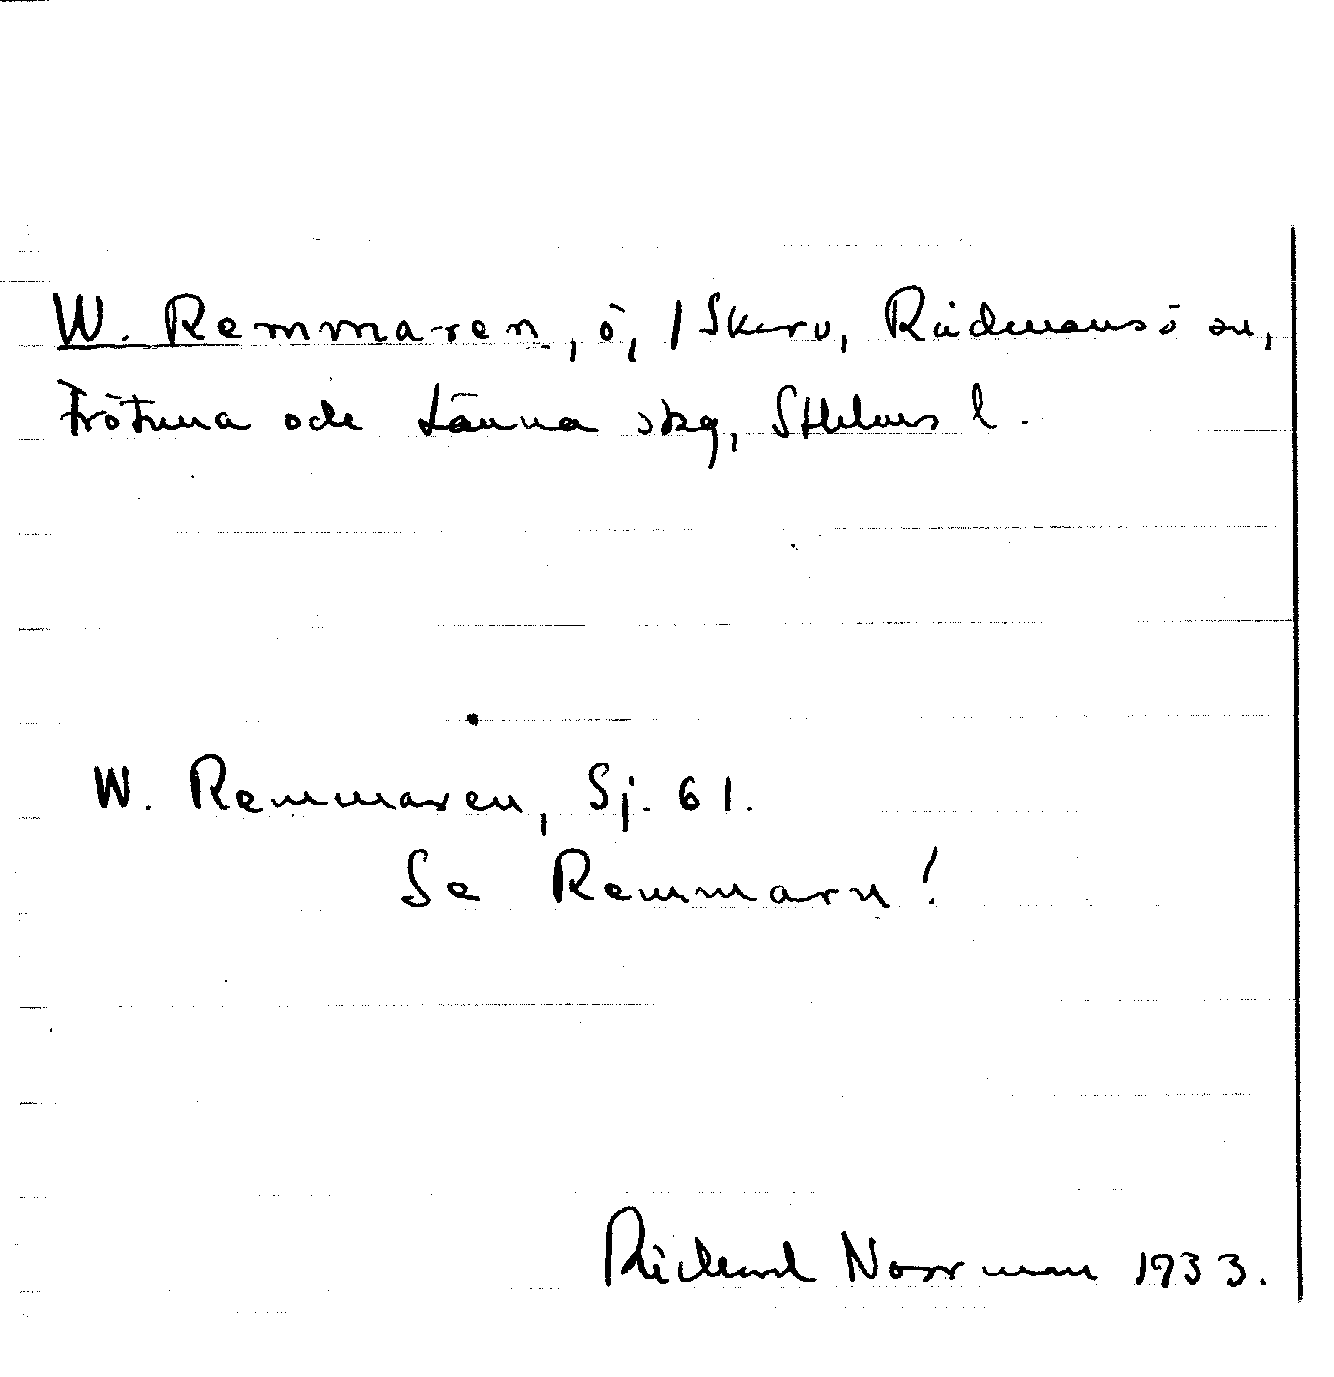 W. Remmaren, ö, / Skarv, Rådmansö sn,
Frötuna och Länna skg, Sthlms l.
W. Remmaren, Sj. 61.
Se Remmarn!
Rickard Norrman 1933.